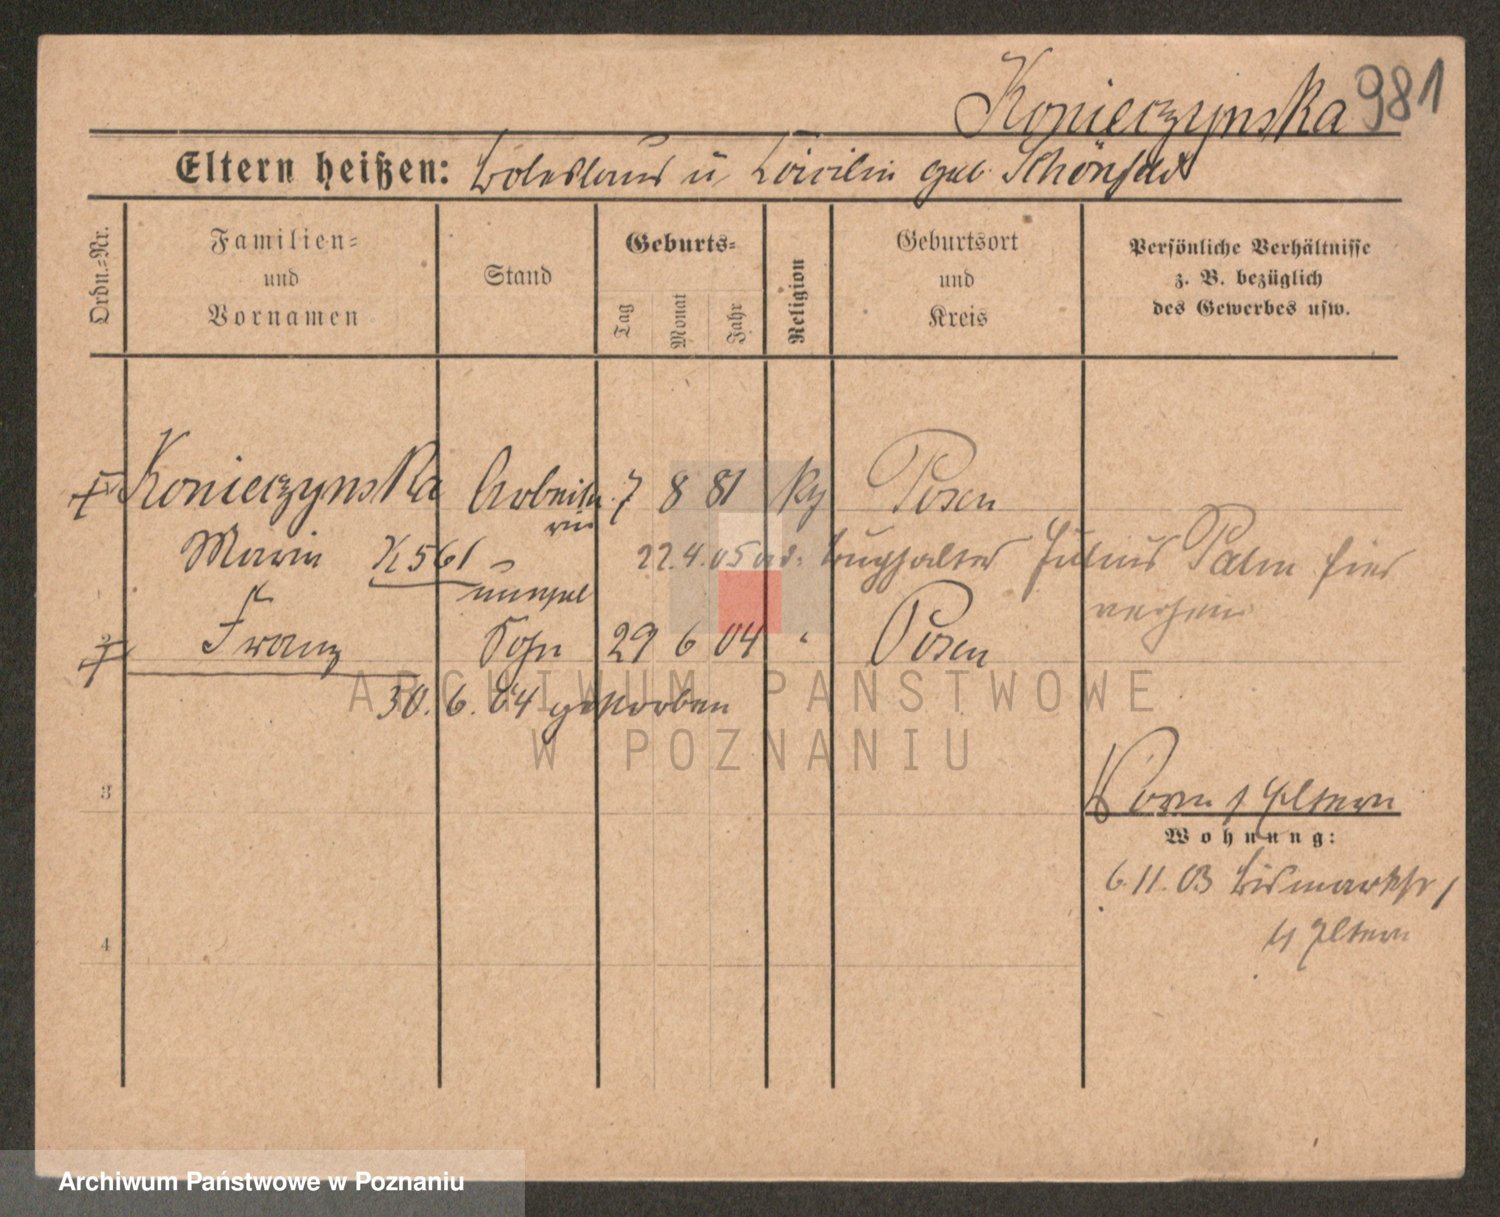 Konieczynska 981
Eltern heißen: Boleslaus u Cäcilia geb. Schönfeld
Ordn.-Nr.
Familien-
und
Vornamen
Stand
Geburts-
Tag
Monat
Jahr
Religion
Geburtsort
und
Kreis
Persönliche Verhältnisse
z. B. bezüglich
des Gewerbes usw.
Konieczynska Arbeite 7 8 81 Posen
rin
Maria K 561 22.4.05 Buchhalter Julius Palm hier
2
Franz Sohn 29 6 04 " Posen
30.6.04 gestorben
ARCHIWUM PAŃSTWOWE
W POZNANIU
3
Eltern
Wohnung:
6.11.03 Bismarckstr 1
4 Eltern
Archiwum Państwowe w Poznaniu